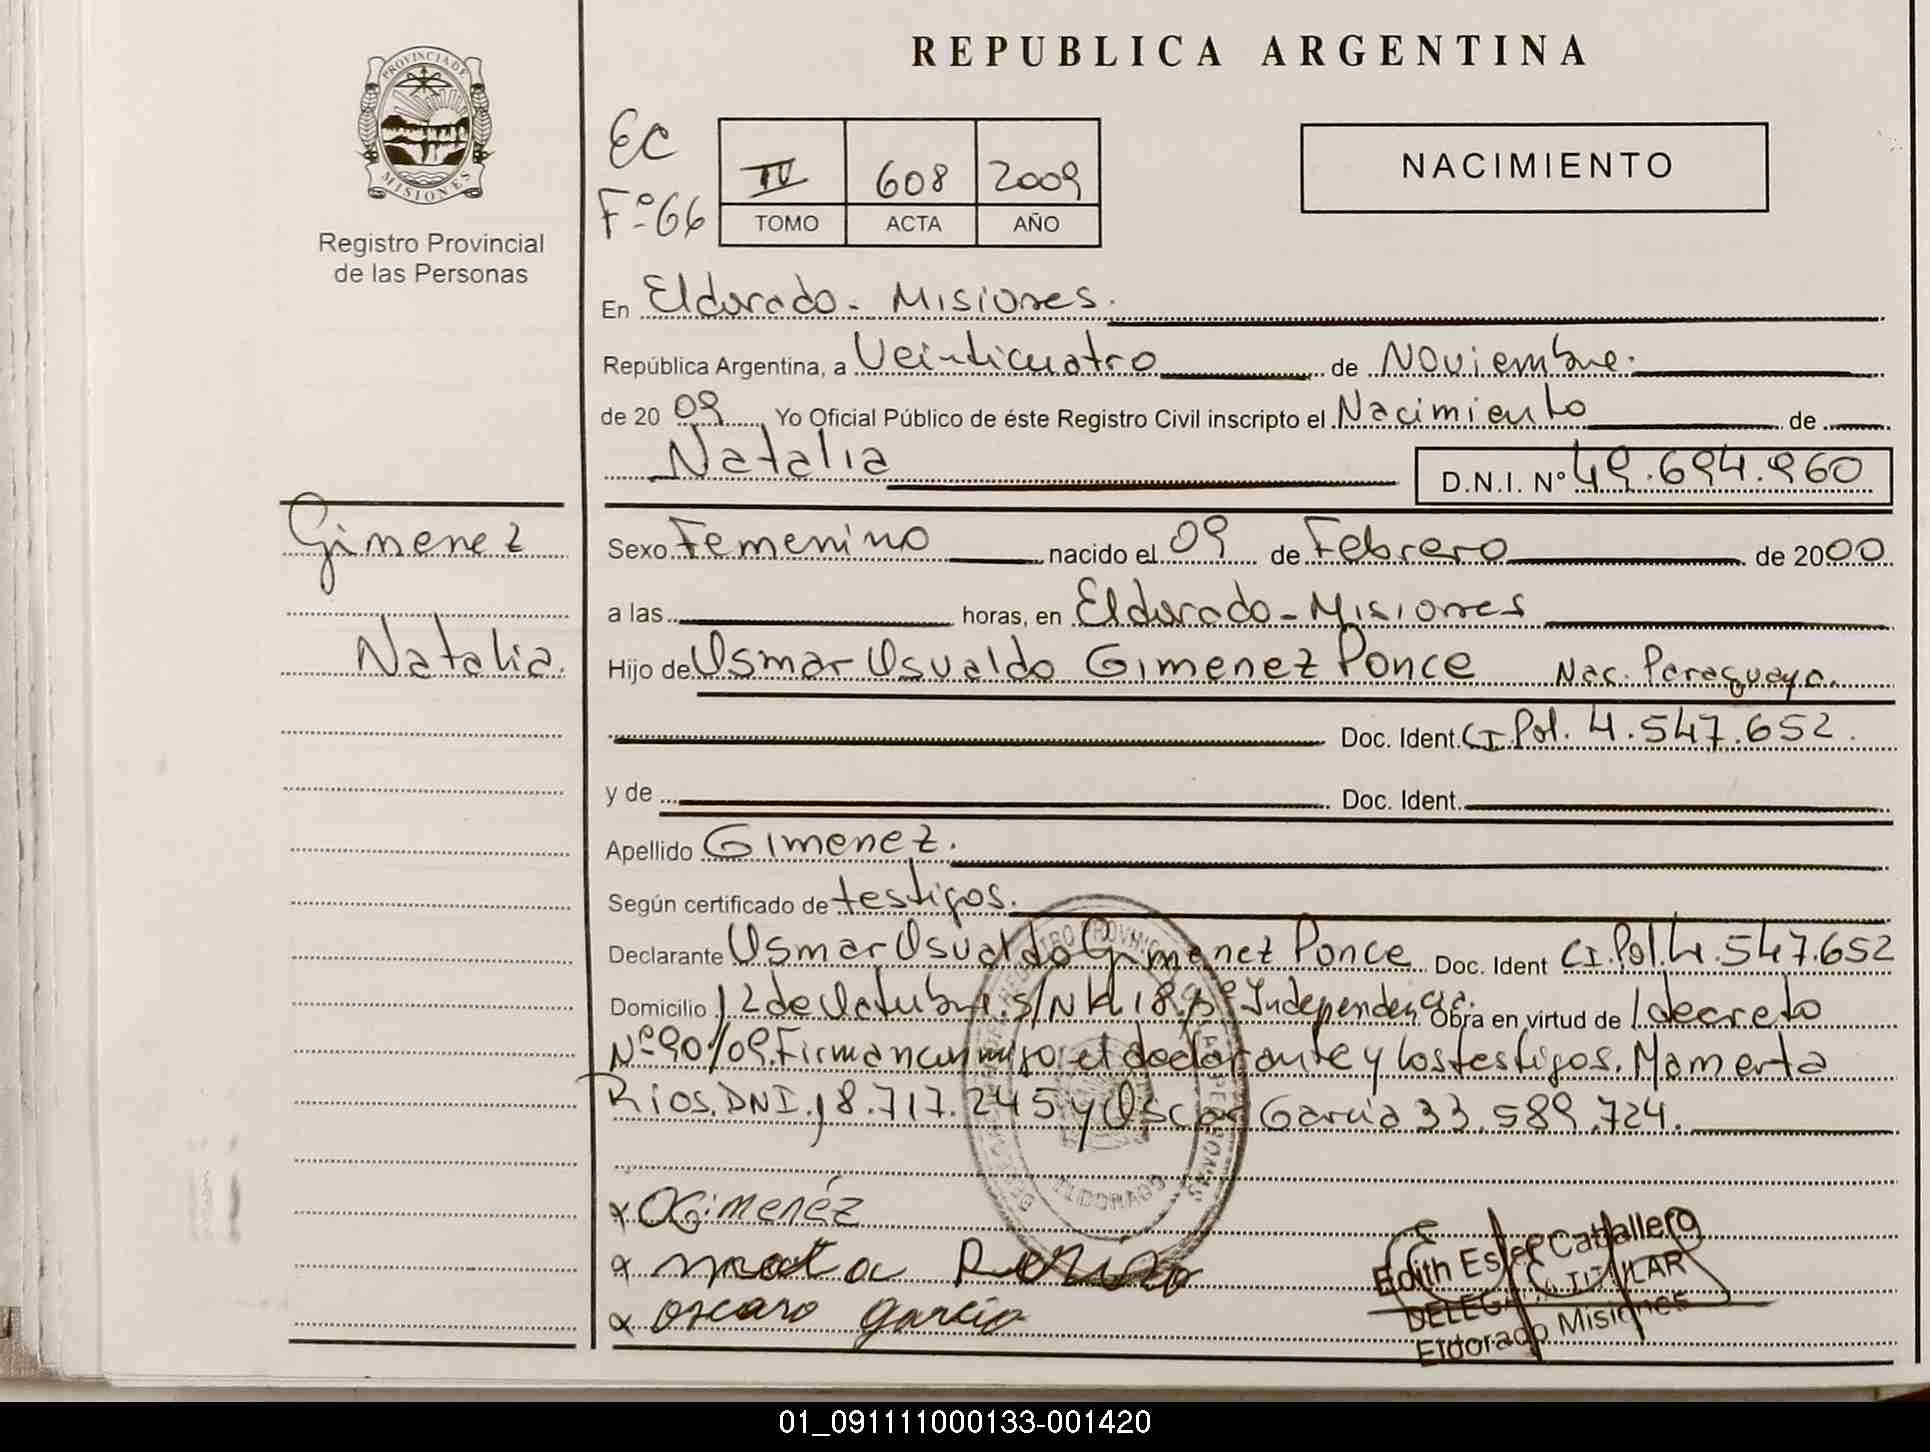 REPUBLICA ARGENTINA
PROVINCIA DE MISIONES
Registro Provincial
de las Personas
EC
Fº 66
IV 608 2009
TOMO ACTA AÑO
NACIMIENTO
En Eldorado - Misiones.
República Argentina, a Veinticuatro de Noviembre.
de 20 09 Yo Oficial Público de éste Registro Civil inscripto el Nacimiento de
Natalia D.N.I. Nº 49.694.960
Gimenez
Natalia.
Sexo Femenino nacido el 09 de Febrero de 2000
a las horas, en Eldorado - Misiones
Hijo de Osmar Osvaldo Gimenez Ponce Nac. Paraguaya.
Doc. Ident. CI. Pol. 4.547.652.
y de Doc. Ident.
Apellido Gimenez.
Según certificado de testigos.
Declarante Osmar Osvaldo Gimenez Ponce Doc. Ident CI. Pol. 4.547.652
Domicilio 12 de Octubre. s/N K 18 Bº Independencia. Obra en virtud de decreto
Nº 90/09. Firman conmigo el declarante y los testigos. Mamerta
Rios. DNI. 18.717.245 y Oscar Garcia 33.589.724.
ELDORADO
x OGimenéz
x
x oscaro garcia
Edith Ester Caballero
DELEGADA TITULAR
Eldorado Misiones
01_091111000133-001420